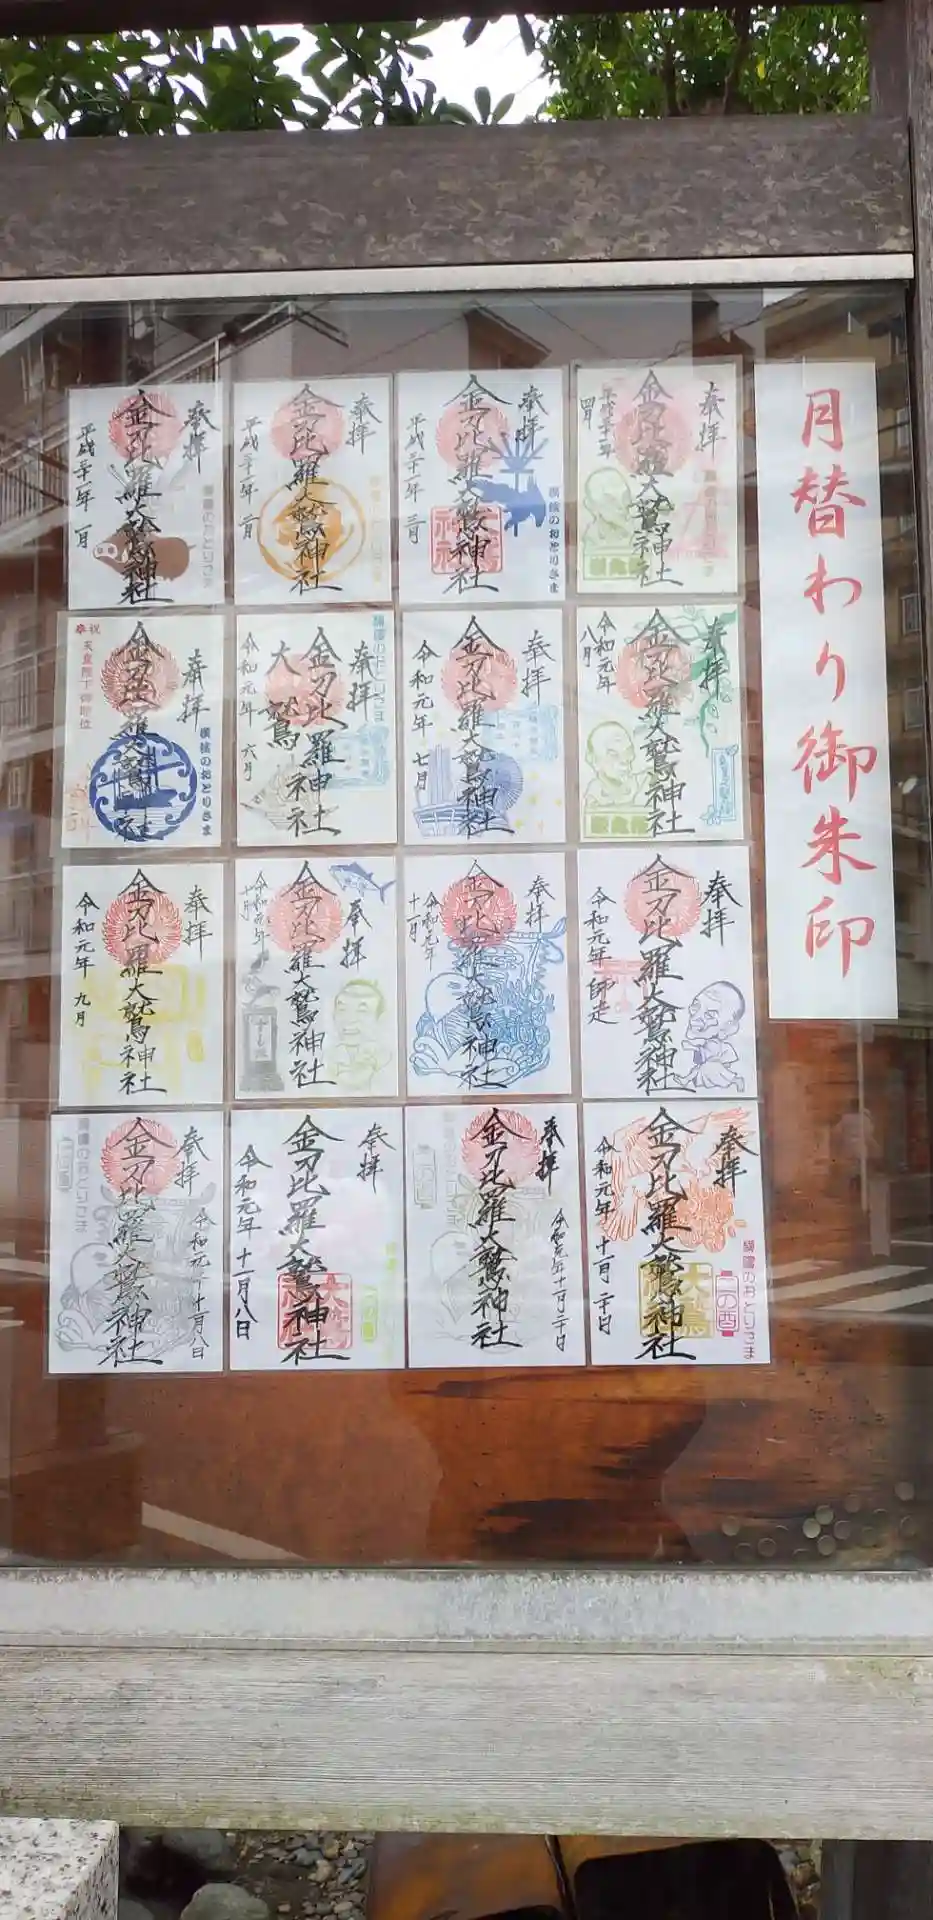 月替わり御朱印
奉拝
金刀比羅大鷲神社
平成三十一年 一月
横濱のおとりさま
奉拝
金刀比羅大鷲神社
平成三十一年 二月
奉拝
金刀比羅大鷲神社
平成三十一年 三月
横濱のおとりさま
奉拝
金刀比羅大鷲神社
平成三十一年
四月
奉祝
天皇陛下御即位
奉拝
金刀比羅大鷲神社
横濱のおとりさま
奉拝
金刀比羅神社
大鷲
令和元年 六月
横濱のおとりさま
奉拝
金刀比羅大鷲神社
令和元年 七月
奉拝
金刀比羅大鷲神社
令和元年
八月
奉拝
金刀比羅大鷲神社
令和元年 九月
奉拝
金刀比羅大鷲神社
令和元年
十月
奉拝
金刀比羅大鷲神社
令和元年
十一月
奉拝
金刀比羅大鷲神社
令和元年 師走
奉拝
金刀比羅大鷲神社
令和元年十一月八日
横濱のおとりさま
奉拝
金刀比羅大鷲神社
令和元年十一月八日
奉拝
金刀比羅大鷲神社
令和元年十一月二十日
奉拝
金刀比羅大鷲神社
令和元年十一月二十日
横濱のおとりさま
二の酉